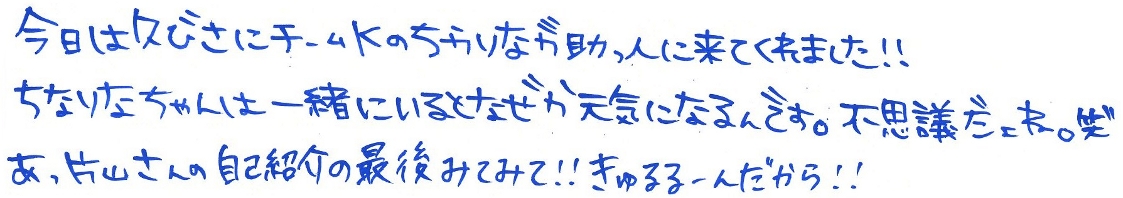 今日は久びさにチームKのちかりなが助っ人に来てくれました!!
ちかりなちゃんは一緒にいるとなぜか元気になるんです。不思議だよね。笑
あ、片山さんの自己紹介の最後みてみて!!きゅるるーんだから!!